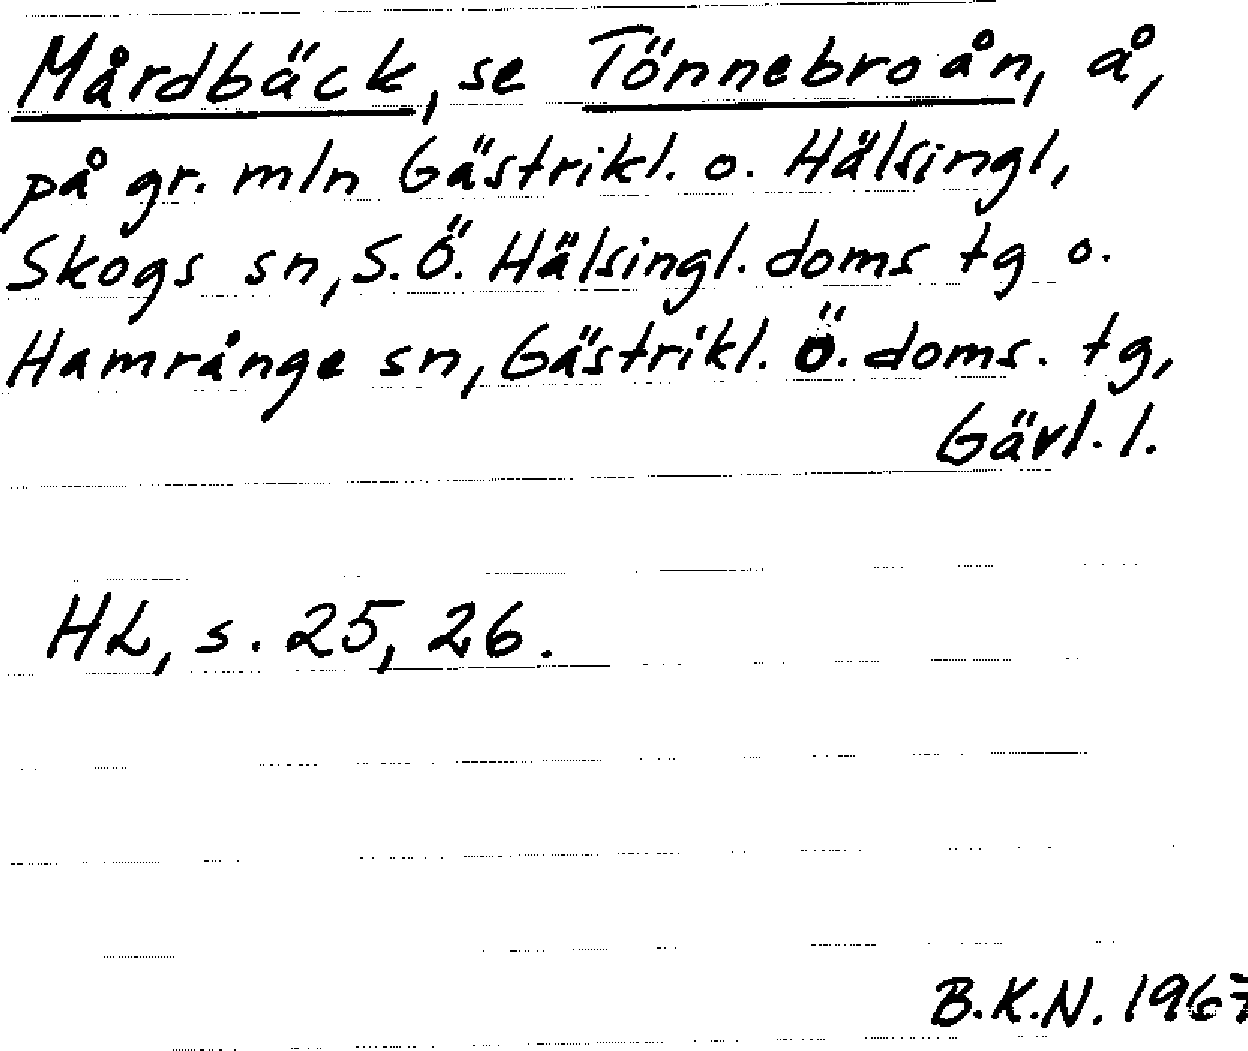 Mårdbäck, se Tönnebroån, å,
på gr. mln Gästrikl. o. Hälsingl,
Skogs sn, S.Ö. Hälsingl. doms tg o.
Hamrånge sn, Gästrikl. Ö. doms. tg,
Gävl. l.
HL, s. 25, 26.
B.K.N. 1967